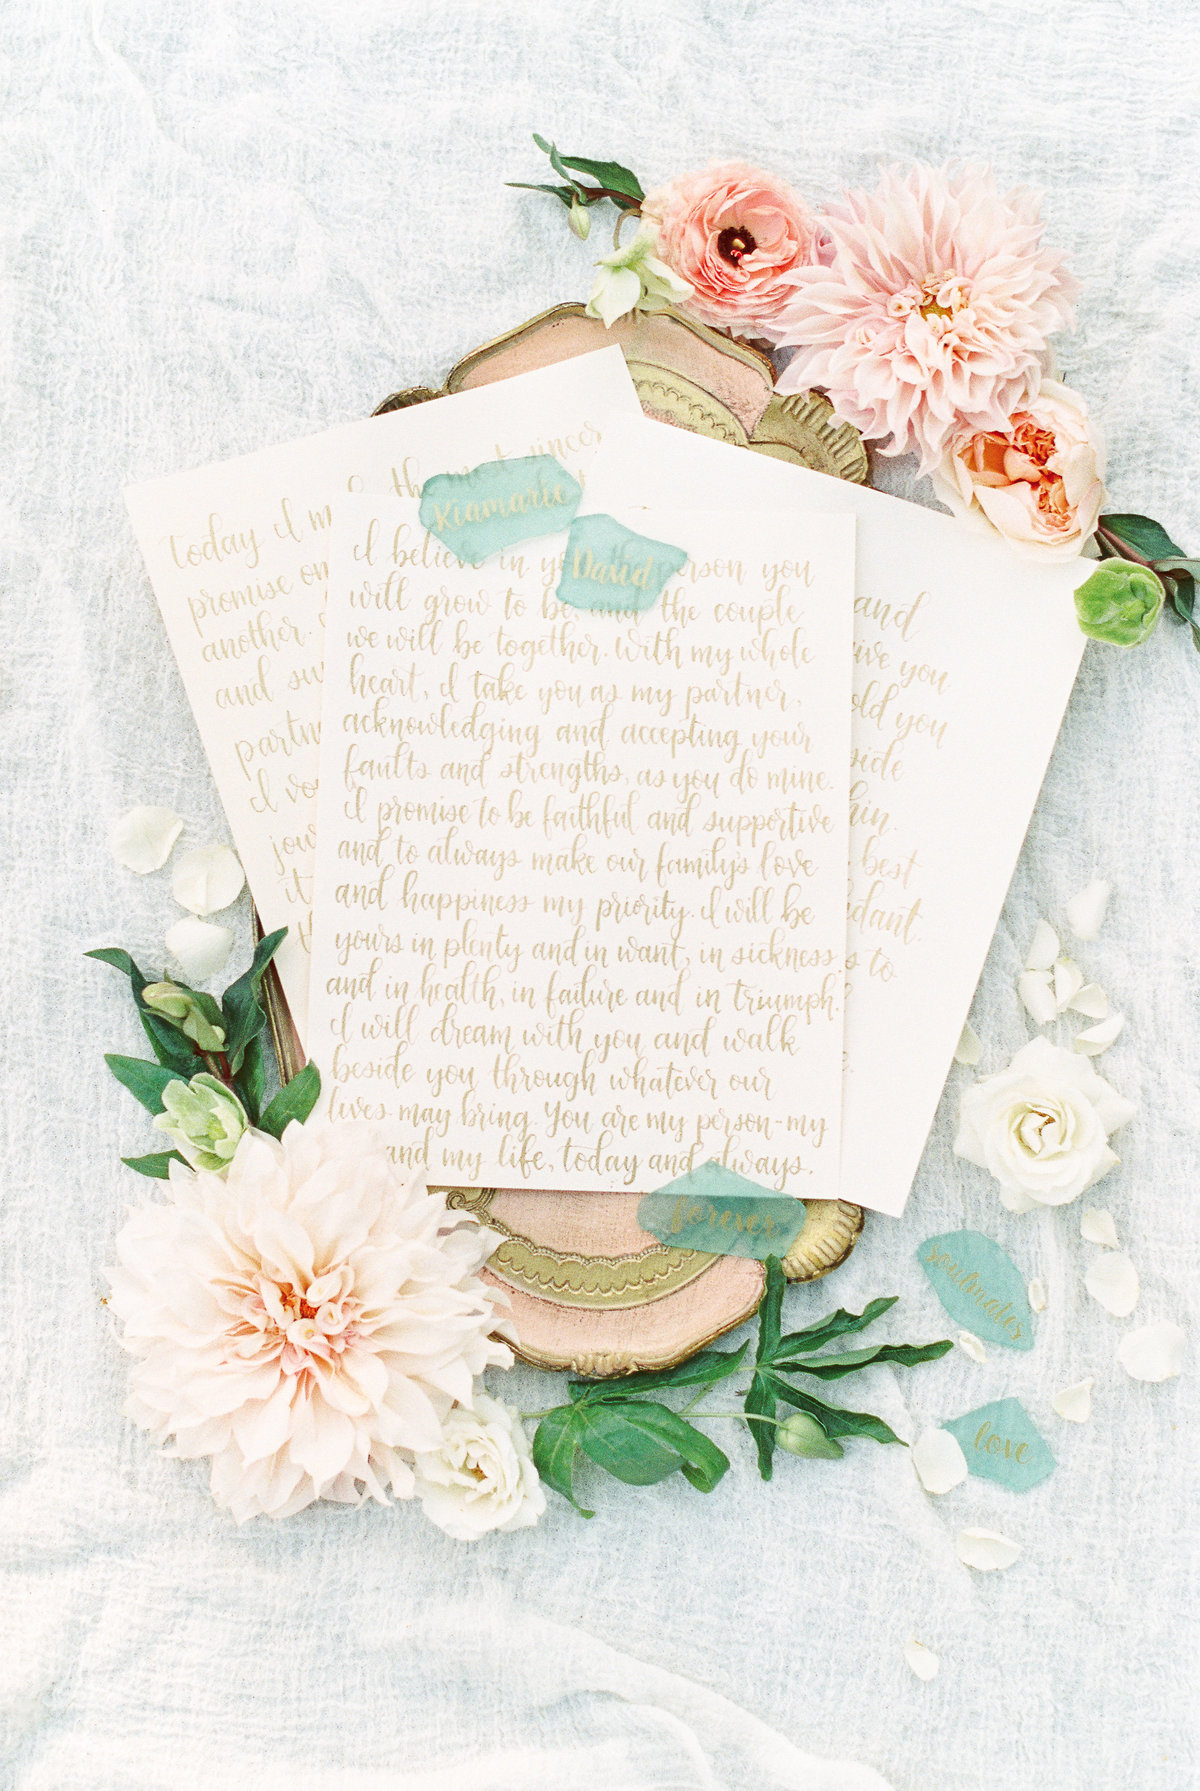 Kiamarie
David
I believe in you, the person you
will grow to be, and the couple
we will be together. With my whole
heart, I take you as my partner,
acknowledging and accepting your
faults and strengths, as you do mine.
I promise to be faithful and supportive
and to always make our family's love
and happiness my priority. I will be
yours in plenty and in want, in sickness
and in health, in failure and in triumph.
I will dream with you and walk
beside you through whatever our
lives may bring. You are my person-my
and my life, today and always.
forever
soulmates
love
Today I
promise
another.
and
I
and
you
you
best
to